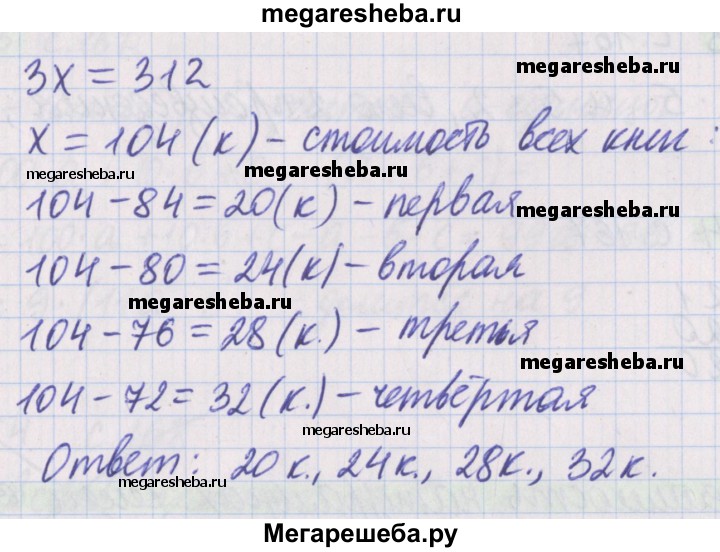 megaresheba.ru
3x = 312
megaresheba.ru
x = 104 (к) – стоимость всех книг:
megaresheba.ru
megaresheba.ru
104 – 84 = 20 (к) – первая
104 – 80 = 24 (к) – вторая
megaresheba.ru
104 – 76 = 28 (к.) – третья
megaresheba.ru
104 – 72 = 32 (к.) – четвёртая
megaresheba.ru
Ответ: 20 к., 24 к., 28 к., 32 к.
megaresheba.ru
Мегарешеба.ру